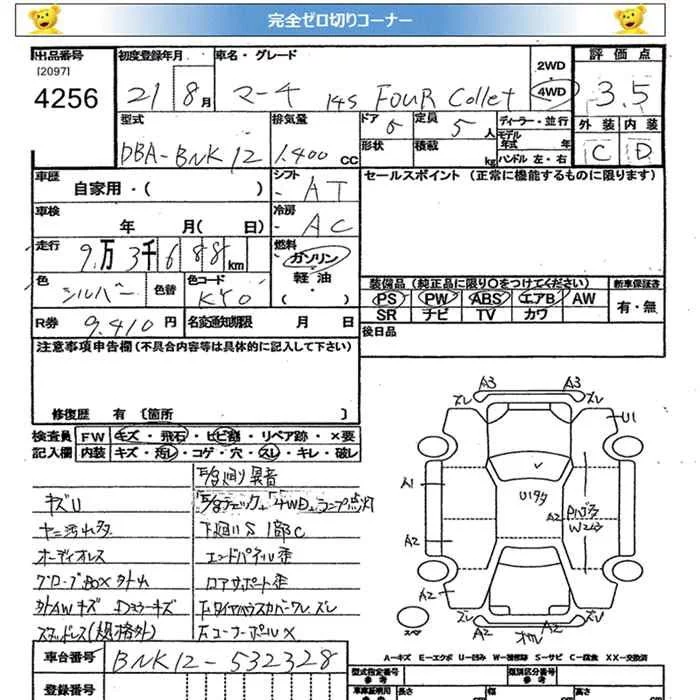 完全ゼロ切りコーナー
出品番号 初度登録年月 車名・グレード 2WD 評価点
[2097]
4256 21 8月 マーチ 14S FOUR Collet 4WD 3.5
型式 排気量 ドア 定員 ディーラー・並行 外装 内装
DBA-BNK12 1.400cc 5人 モデル年式 年 C D
形状 積載 kg ハンドル 左・右
車歴 自家用・( ) シフト AT セールスポイント(正常に機能するものに限ります)
車検 年 月( 日) 冷房 AC
走行 9万3千688km 燃料 ガソリン
軽油
・( )
色 シルバー 色替 色コード KY0
装備品(純正品に限り○をつけてください) 新車保証書
PS PW ABS エアB AW 有・無
SR ナビ TV カワ
R券 9,410円 名変通知期限 月 日 後日品
注意事項申告欄(不具合内容等は具体的に記入して下さい)
修復歴 有 [箇所 ]
検査員 FW キズ・飛石・ヒビ割・リペア跡・×要
記入欄 内装 キズ・汚レ・コゲ・穴・スレ・キレ・破レ
キズU
ヤニ汚れ多
オーディオレス
グローブBOX外れ
外AWキズ
スタッドレス(規格外)
異音
4WDランプ点灯
下廻りS 1部C
エンドパネル歪
ロアサポート歪
タイヤハウスカバークレ ズレ
コーナーポールX
A3 A3
ズレ ズレ
U1
A1
U1多
A2 A2
W2
A2
スペア
ズレ ズレ
A2 A2
A-キズ E-エクボ U-凹み W-補修跡 S-サビ C-腐食 XX-交換済
車台番号 BNK12-532328
型式指定番号 類別区分番号
登録番号
車庫証明用参考 長さ 幅 高さ